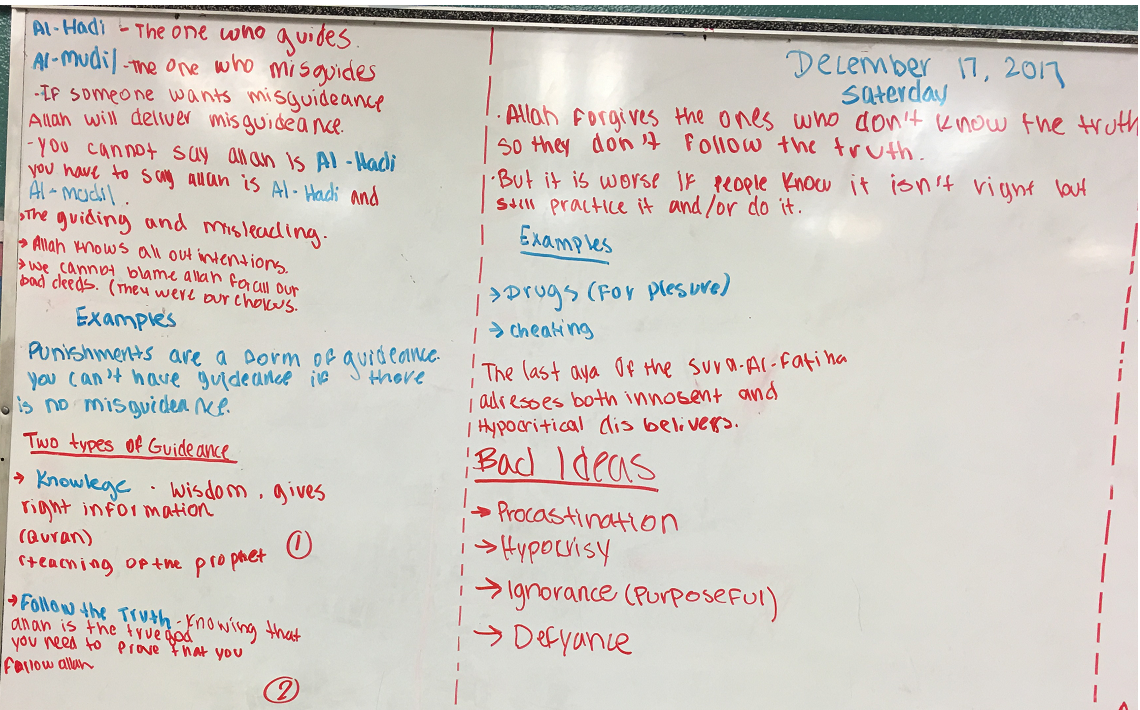 Al-Hadi - The one who guides.
Al-mudil - the one who misguides
-If someone wants misguideance
Allah will deliver misguideance.
-you cannot say allah is Al-Hadi
you have to say allah is Al-Hadi and
Al-mudil.
→The guiding and misleading.
→ Allah knows all out intentions.
→we cannot blame allah for all our
bad deeds. (They were our choices.
Examples
Punishments are a form of guideance.
you can't have guideance if there
is no misguideance.
Two types of Guideance
→ Knowlege . wisdom, gives
right information
(Quran)
(teaching of the prophet
①
→Follow the Truth - Knowing that
allah is the true god
you need to prove that you
follow allah
②
December 17, 2017
saterday
. Allah forgives the ones who don't know the truth
so they don't follow the truth.
. But it is worse if people know it isn't right but
still practice it and/or do it.
Examples
→ Drugs (for plesure)
→ cheating
The last aya of the sura-Al-Fatiha
adresses both innosent and
Hypocritical dis belivers.
Bad Ideas
→ Procastination
→ Hypocrisy
→ Ignorance (Purposeful)
→ Defyance